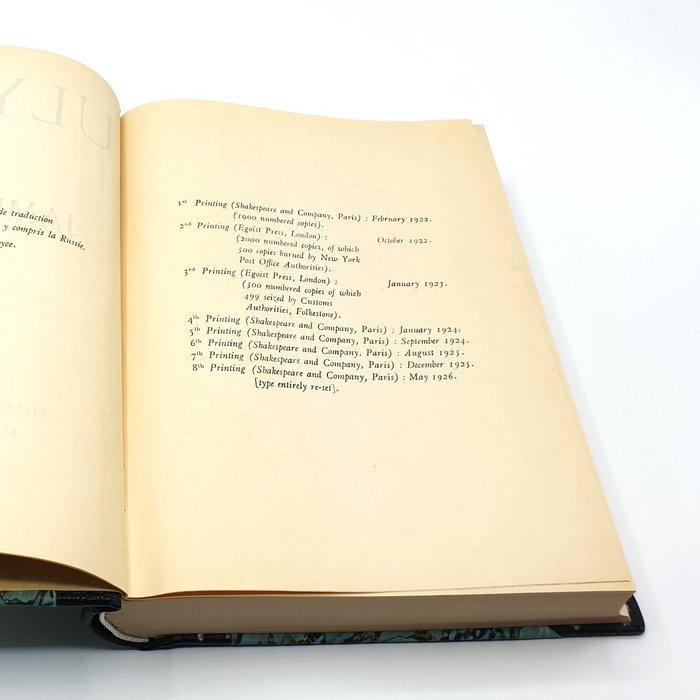 de traduction
y compris la Russie.
yce.
1st Printing (Shakespeare and Company, Paris) : February 1922.
(1000 numbered copies).
2nd Printing (Egoist Press, London) : October 1922.
(2000 numbered copies, of which
500 copies burned by New York
Post Office Authorities).
3rd Printing (Egoist Press, London) : January 1923.
(500 numbered copies of which
499 seized by Customs
Authorities, Folkestone).
4th Printing (Shakespeare and Company, Paris) : January 1924.
5th Printing (Shakespeare and Company, Paris) : September 1924.
6th Printing (Shakespeare and Company. Paris) : August 1925.
7th Printing (Shakespeare and Company, Paris) : December 1925.
8th Printing (Shakespeare and Company, Paris) : May 1926.
[type entirely re-set].